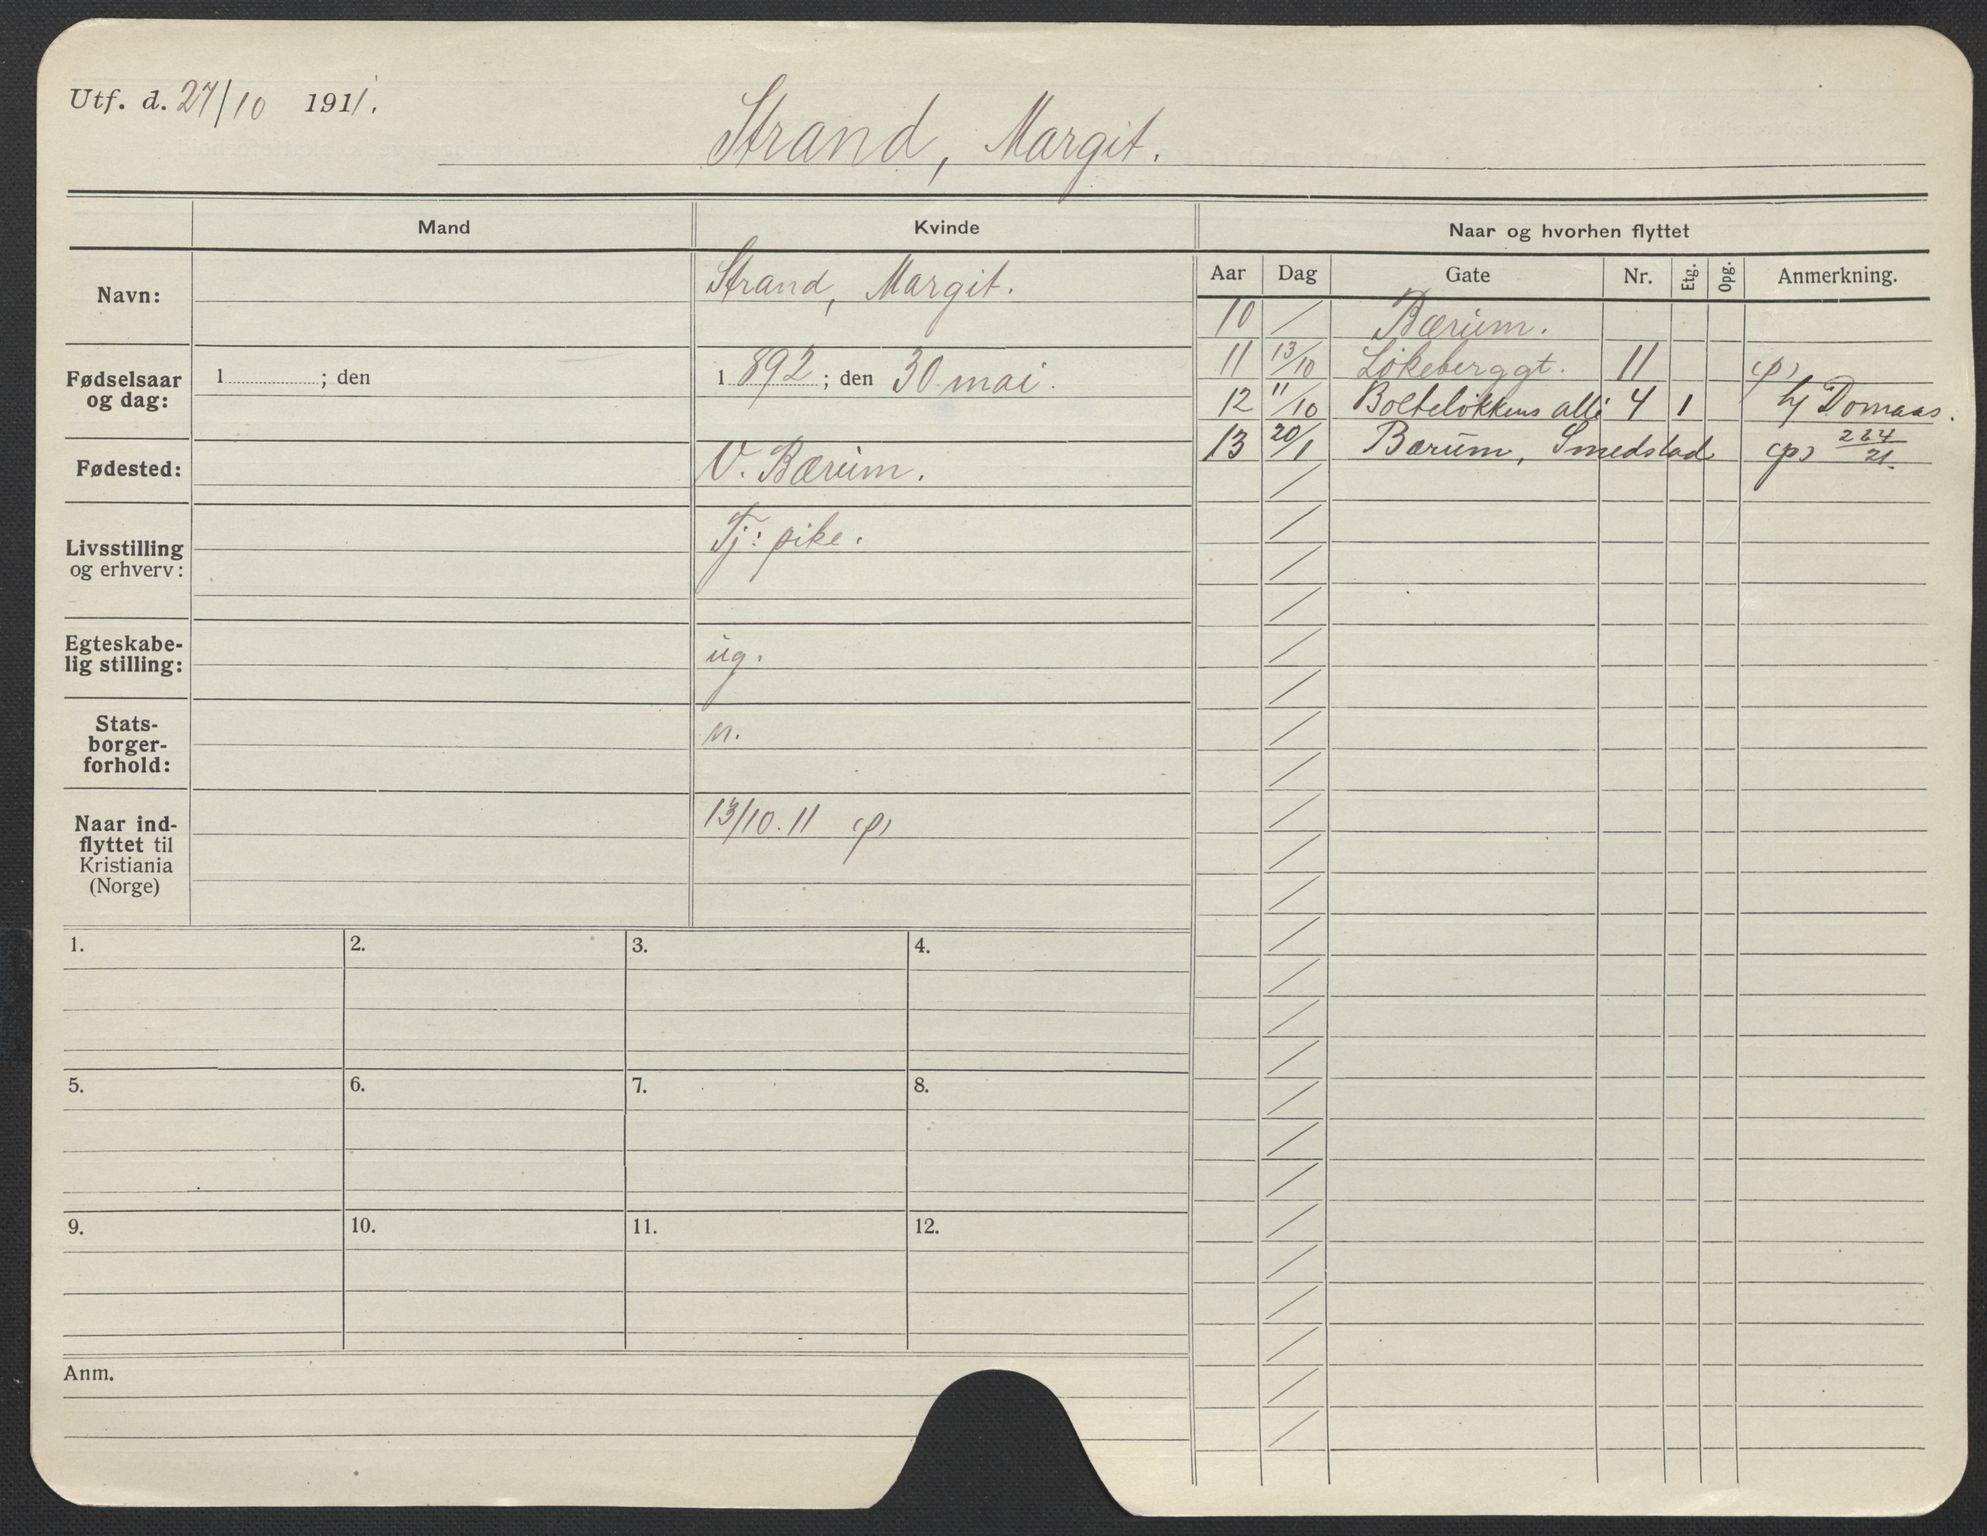 Utf. d. 27/10 1911.
Strand, Margit.
Mand Kvinde Naar og hvorhen flyttet
Aar Dag Gate Nr. Etg. Opg. Anmerkning.
Navn: Strand, Margit.
10 / Bærum.
11 13/10 Løkeberggt. 11 (p)
12 11/10 Bolteløkkens allé 4 1 hj Domaas.
13 20/1 Bærum, Smedstad (p) 264/21.
Fødselsaar
og dag: 1 ; den 1 892 ; den 30 mai.
Fødested: V. Bærum.
Livsstilling
og erhverv: Tj: pike.
Egteskabe-
lig stilling: ug.
Stats-
borger-
forhold: n.
Naar ind-
flyttet til
Kristiania
(Norge) 13/10. 11 (p)
1. 2. 3. 4.
5. 6. 7. 8.
9. 10. 11. 12.
Anm.